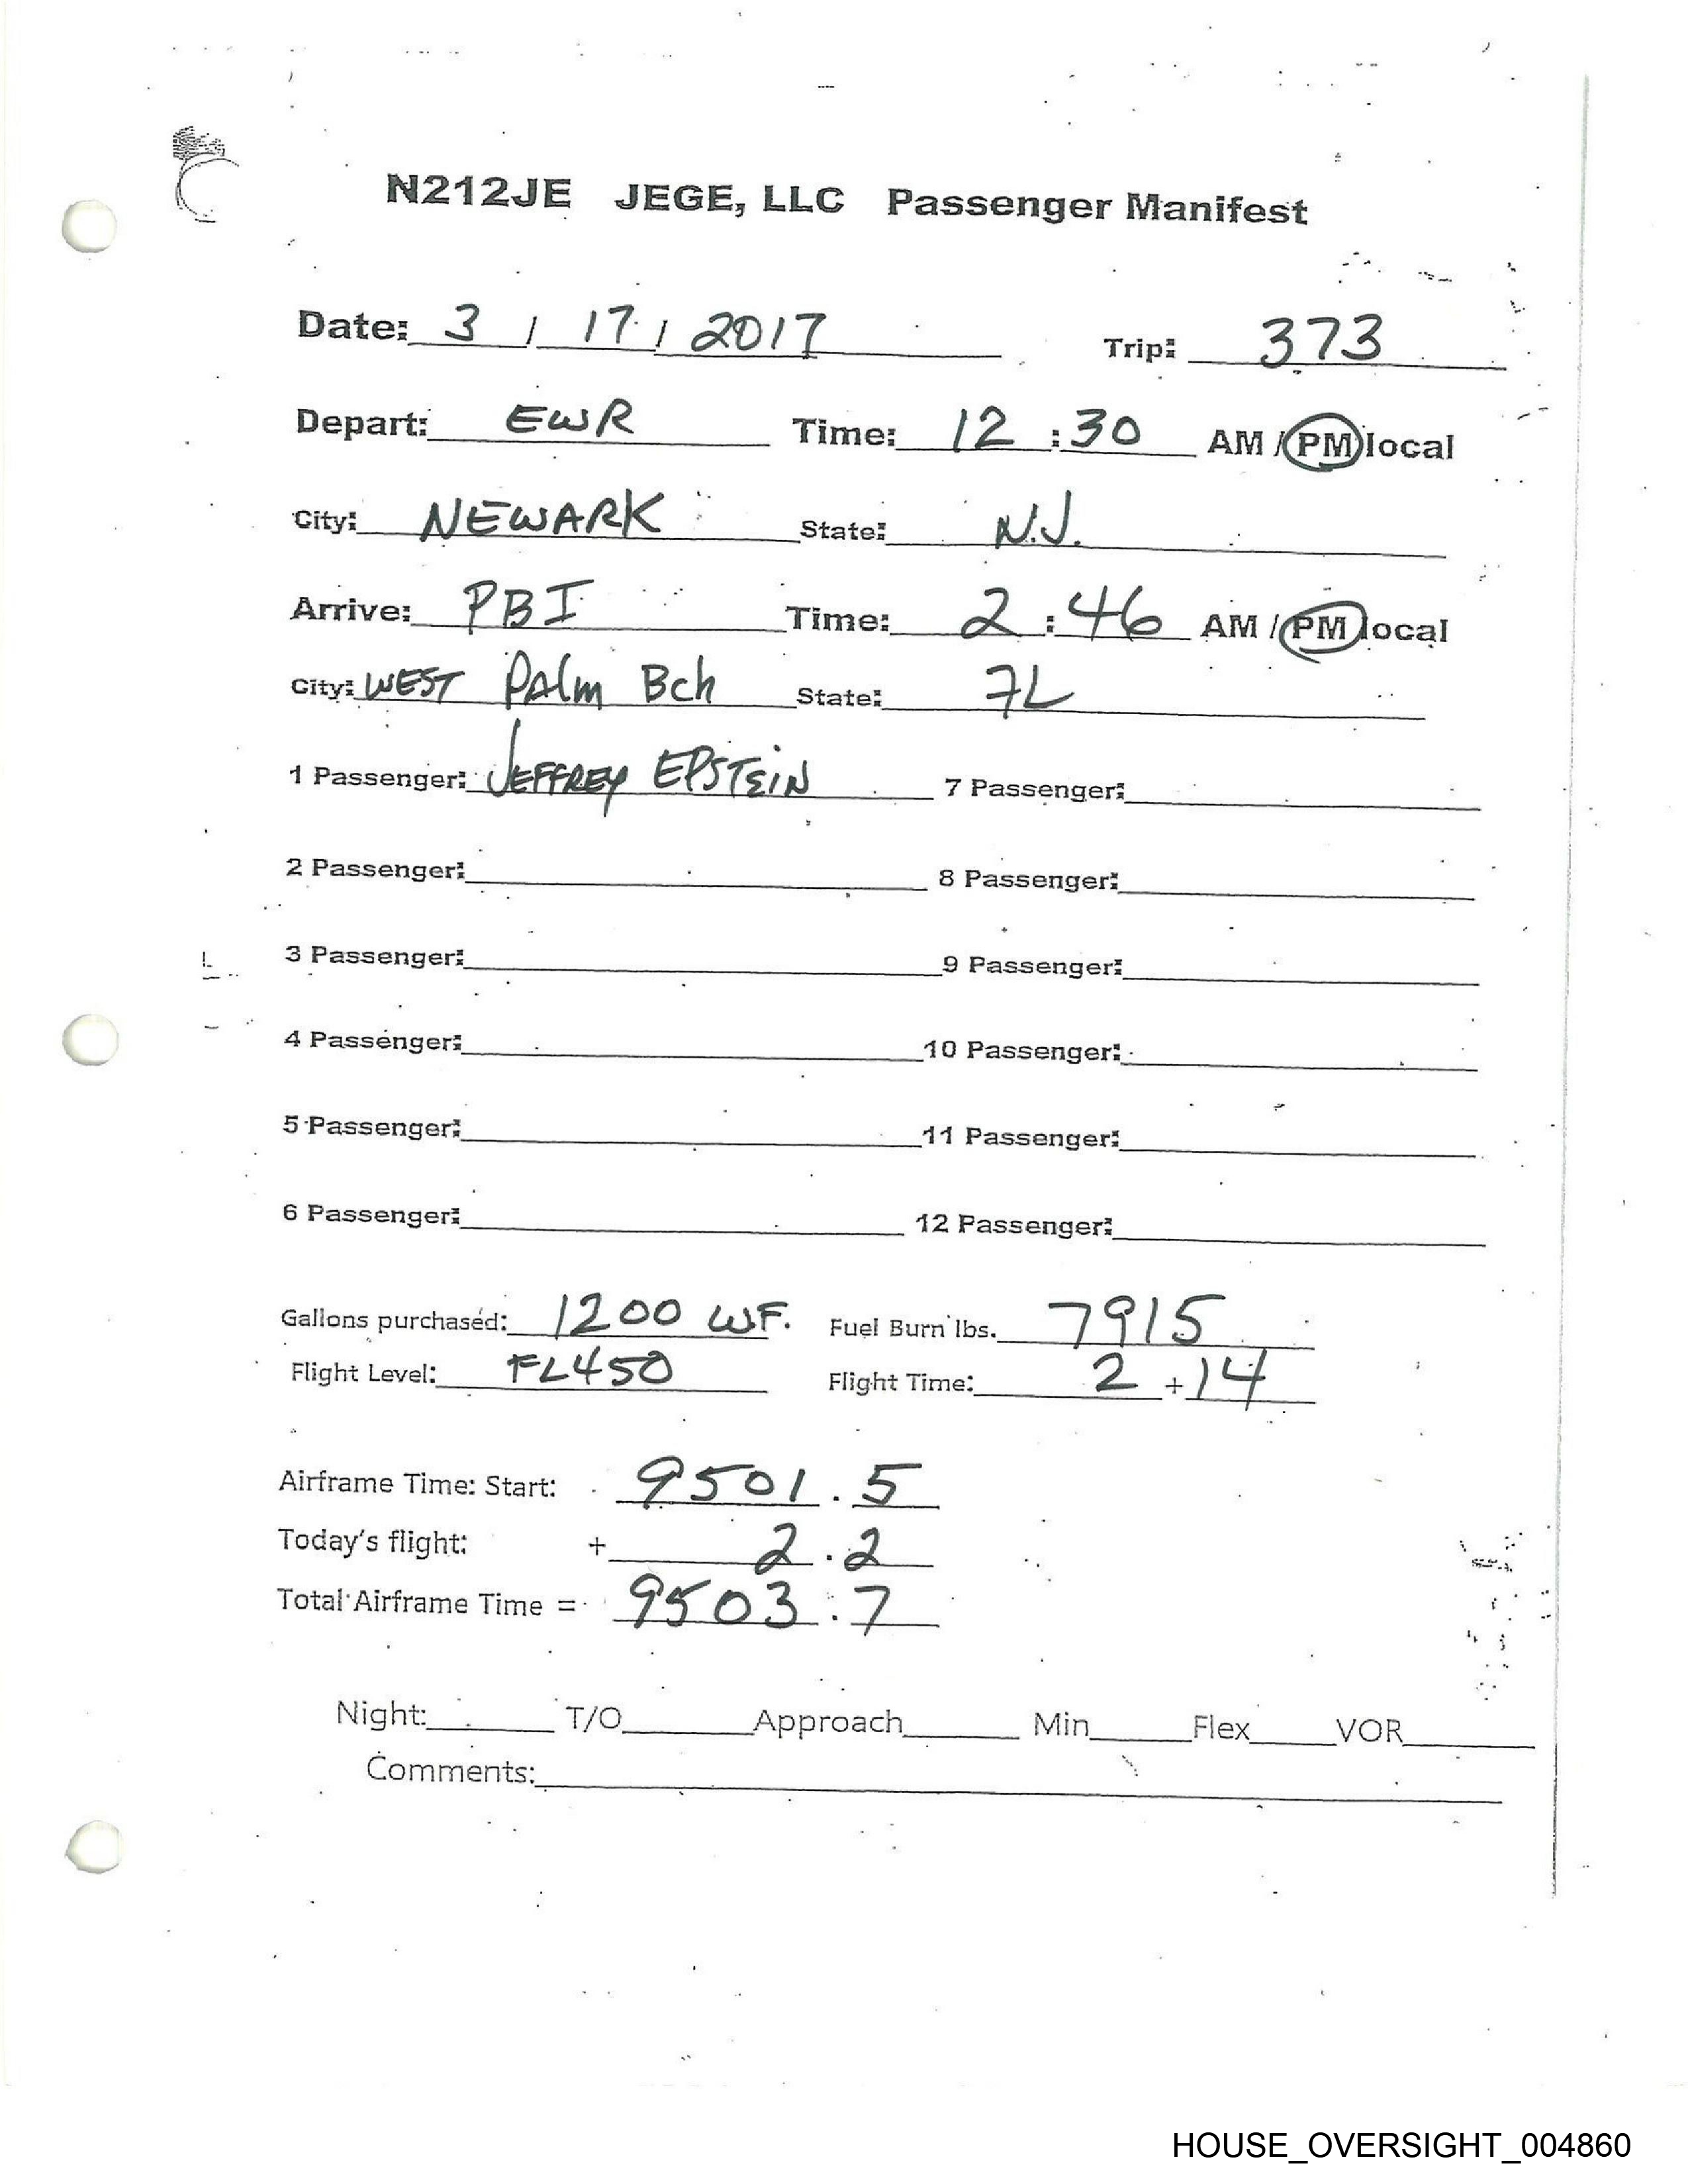 N212JE JEGE, LLC Passenger Manifest
Date: 3 / 17 / 2017 Trip: 373
Depart: EWR Time: 12 :30 AM / PM local
City: NEWARK State: N.J.
Arrive: PBI Time: 2 : 46 AM / PM local
City: WEST PAlm Bch State: FL
1 Passenger: JEFFREY EPSTEIN 7 Passenger:
2 Passenger: 8 Passenger:
3 Passenger: 9 Passenger:
4 Passenger: 10 Passenger:
5 Passenger: 11 Passenger:
6 Passenger: 12 Passenger:
Gallons purchased: 1200 WF. Fuel Burn lbs. 7915
Flight Level: FL450 Flight Time: 2 + 14
Airframe Time: Start: 9501 . 5
Today's flight: + 2 . 2
Total Airframe Time = 9503 . 7
Night: T/O Approach Min Flex VOR
Comments:
HOUSE_OVERSIGHT_004860